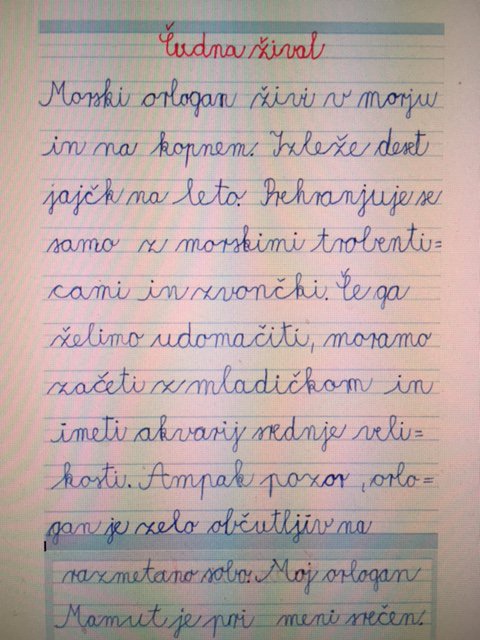 Čudna žival
Morski orlogan živi v morju
in na kopnem. Izleže deset
jajčk na leto. Prehranjuje se
samo z morskimi trobenti=
cami in zvončki. Če ga
želimo udomačiti, moramo
začeti z mladičkom in
imeti akvarij srednje veli=
kosti. Ampak pozor, orlo=
gan je zelo občutljiv na
razmetano sobo. Moj orlogan
Mamut je pri meni srečen.